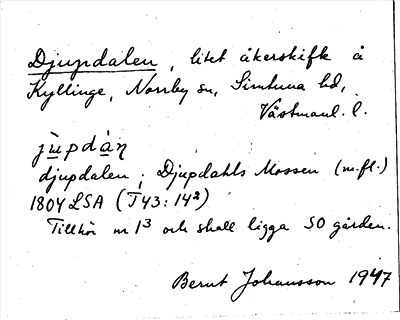 Djupdalen, litet åkerskifte å
Kyllinge, Norrby sn, Simtuna hd,
Västmanl. l.
jùpdàn
djupdalen; Djupdahls Mossen (m.fl.)
1804 LSA (T43:14²)
Tillhör nr 1³ och skall ligga SO gården.
Bernt Johansson 1947